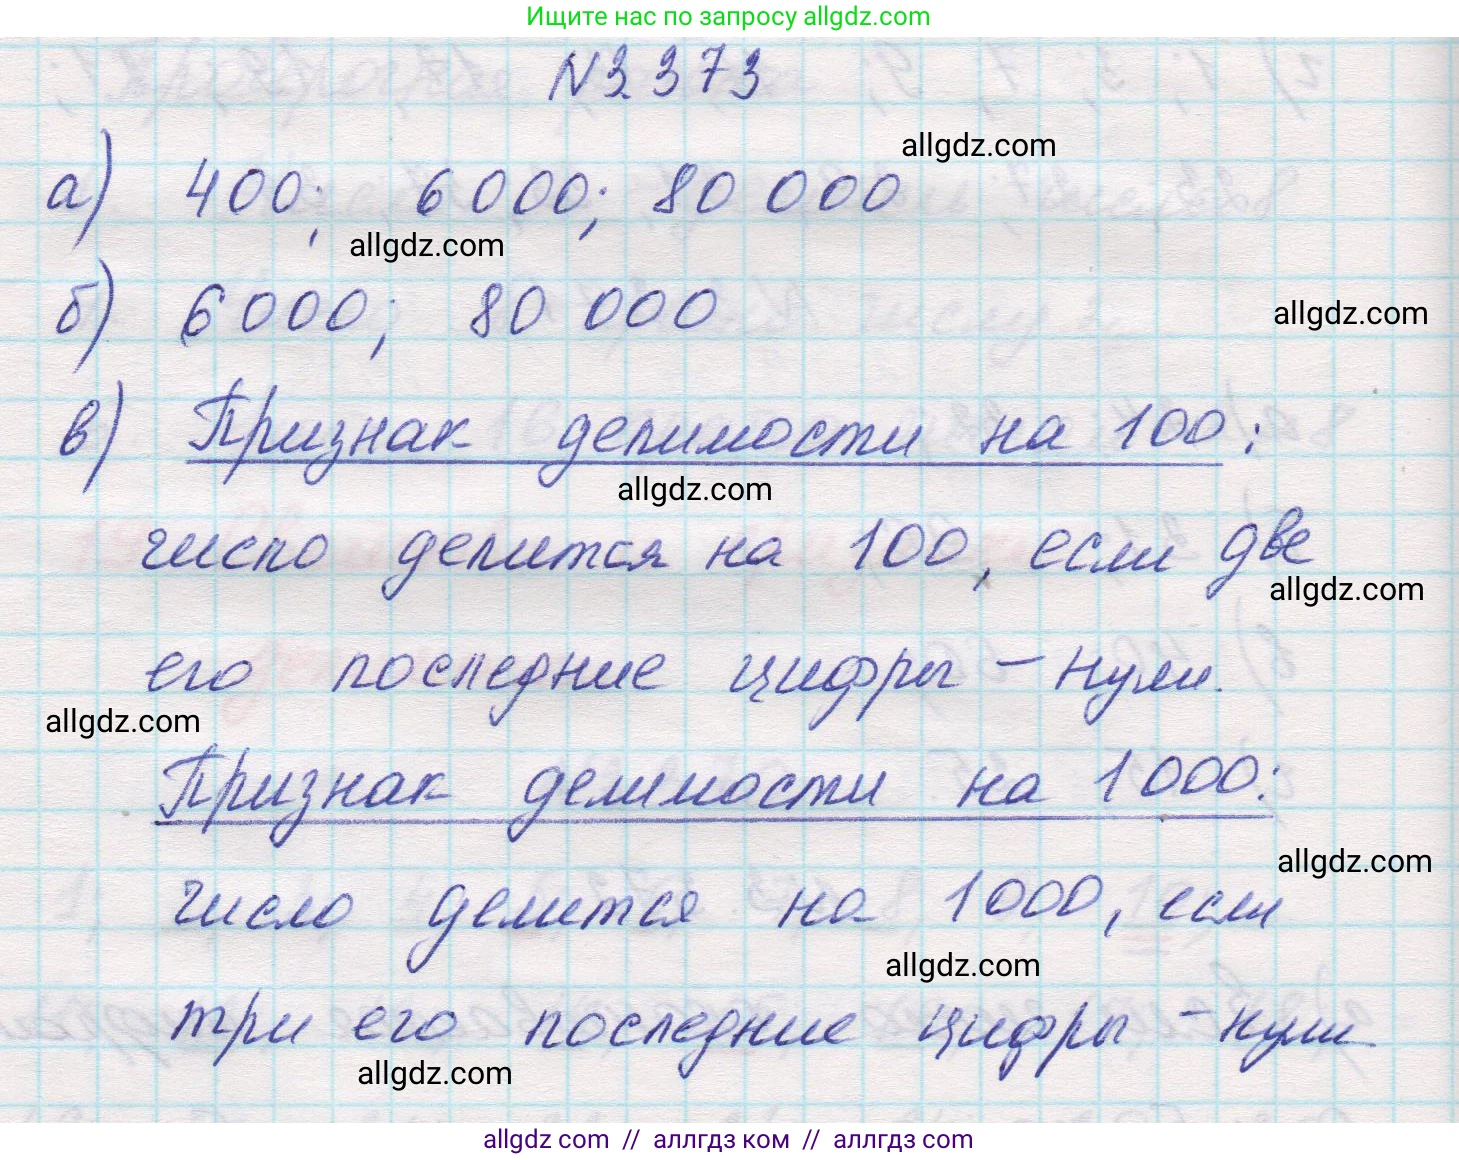 Ищите нас по запросу allgdz.com
N3 373
allgdz.com
а) 400; 6000; 80 000
allgdz.com
б) 6000; 80 000
allgdz.com
в) Признак делимости на 100:
allgdz.com
число делится на 100, если две
allgdz.com
его последние цифры – нули.
allgdz.com
Признак делимости на 1000:
allgdz.com
число делится на 1000, если
allgdz.com
три его последние цифры – нули
allgdz.com
allgdz com // аллгдз ком // аллгдз com